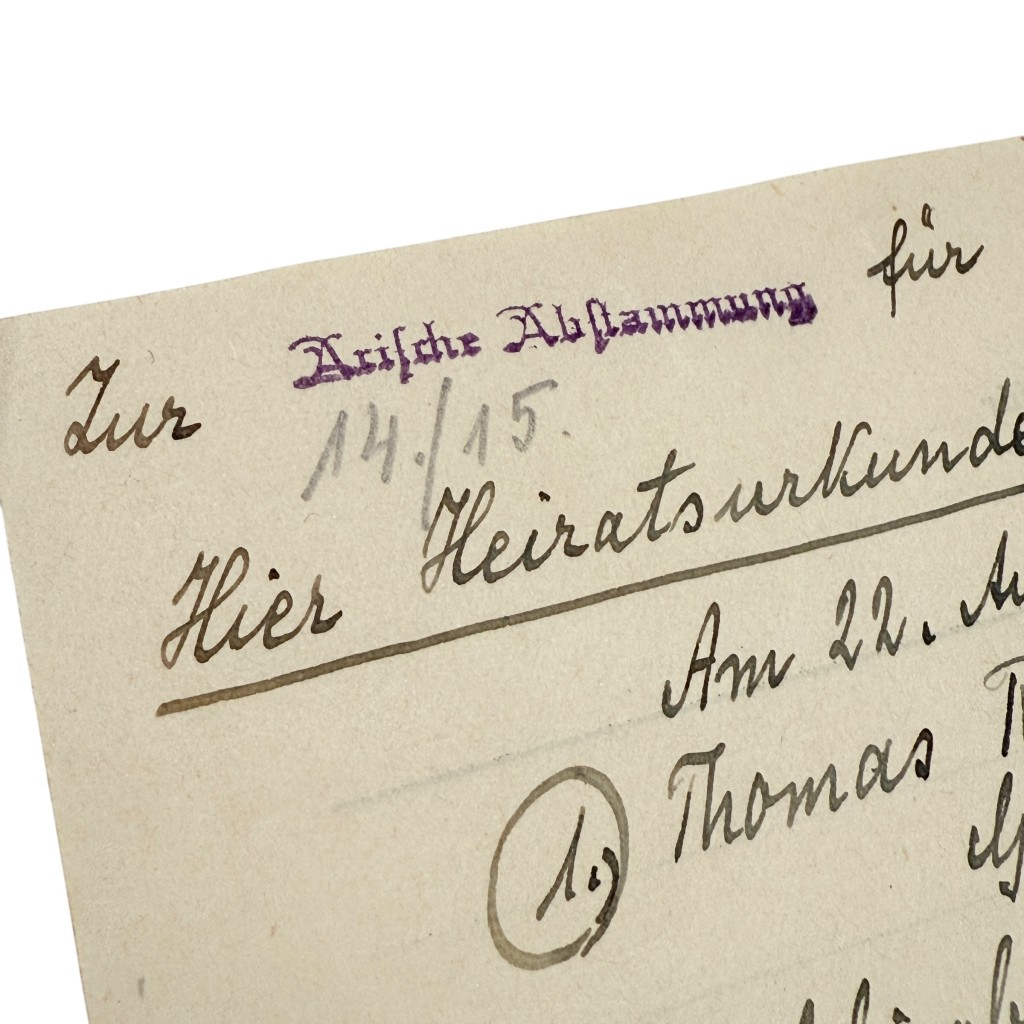 Zur Arische Abstammung für
14./15.
Hier Heiratsurkunde
Am 22.
1.) Thomas